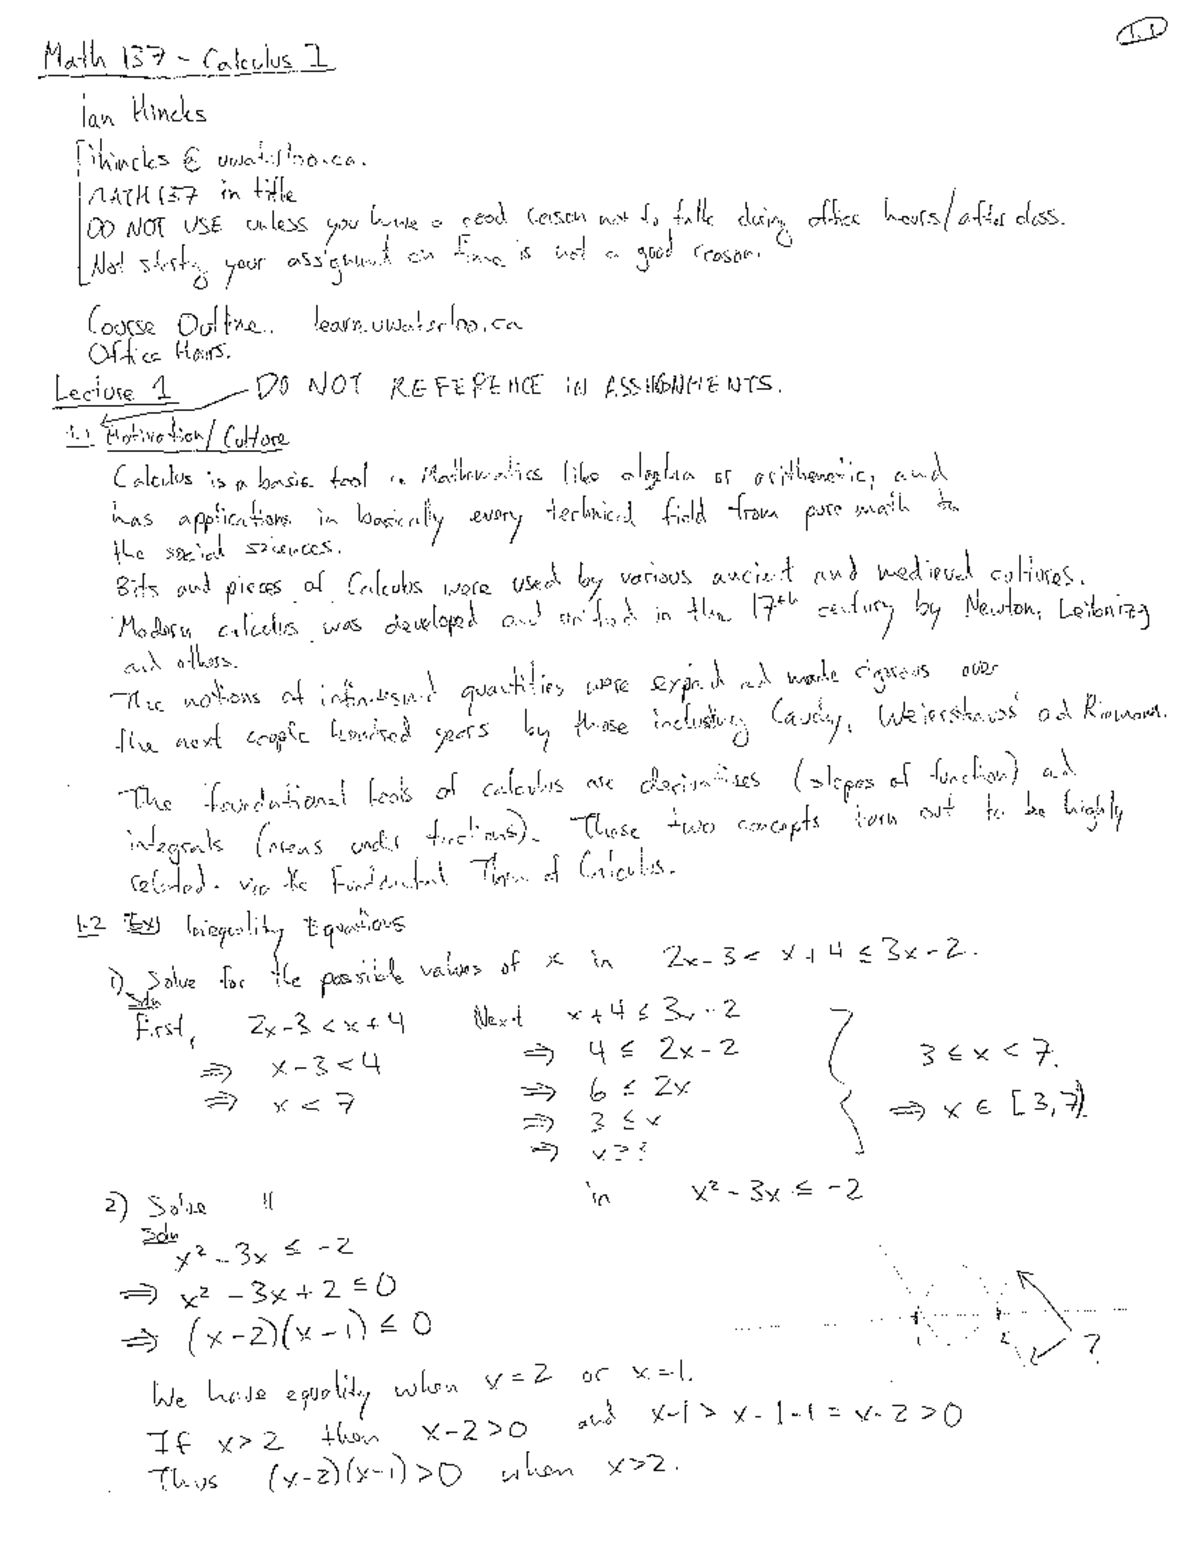 1.1
Math 137 - Calculus 1
Ian Hincks
ihincks @ uwaterloo.ca.
MATH 137 in title
DO NOT USE unless you have a good reason not to talk during office hours/after class.
Not starting your assignment on time is not a good reason.
Course Outline. learn.uwaterloo.ca
Office Hours.
Lecture 1 DO NOT REFERENCE IN ASSIGNMENTS.
1.1 Motivation/Culture
Calculus is a basic tool in Mathematics like algebra or arithmetic, and
has applications in basically every technical field from pure math to
the social sciences.
Bits and pieces of Calculus were used by various ancient and medieval cultures.
Modern calculus was developed and unified in the 17th century by Newton, Leibniz,
and others.
The notions of infinitesimal quantities were expanded and made rigorous over
the next couple hundred years by those including Cauchy, Weierstrauss and Riemann.
The foundational tools of calculus are derivatives (slopes of function) and
integrals (areas under functions). These two concepts turn out to be highly
related. via the Fundamental Thm of Calculus.
1.2 Ex) Inequality Equations
1) Solve for the possible values of x in 2x-3 < x+4 ≤ 3x-2.
Soln
First, 2x-3 < x+4 Next x+4 ≤ 3x-2
⇒ x-3 < 4 ⇒ 4 ≤ 2x-2 3 ≤ x < 7.
⇒ x < 7 ⇒ 6 ≤ 2x ⇒ x ∈ [3,7)
⇒ 3 ≤ x
⇒ x ≥ 3
2) Solve " in x² - 3x ≤ -2
Soln
x² - 3x ≤ -2
⇒ x² - 3x + 2 ≤ 0
⇒ (x-2)(x-1) ≤ 0
1 2 ?
We have equality when x=2 or x=1.
If x>2 then x-2>0 and x-1 > x-1-1 = x-2 >0
Thus (x-2)(x-1)>0 when x>2.